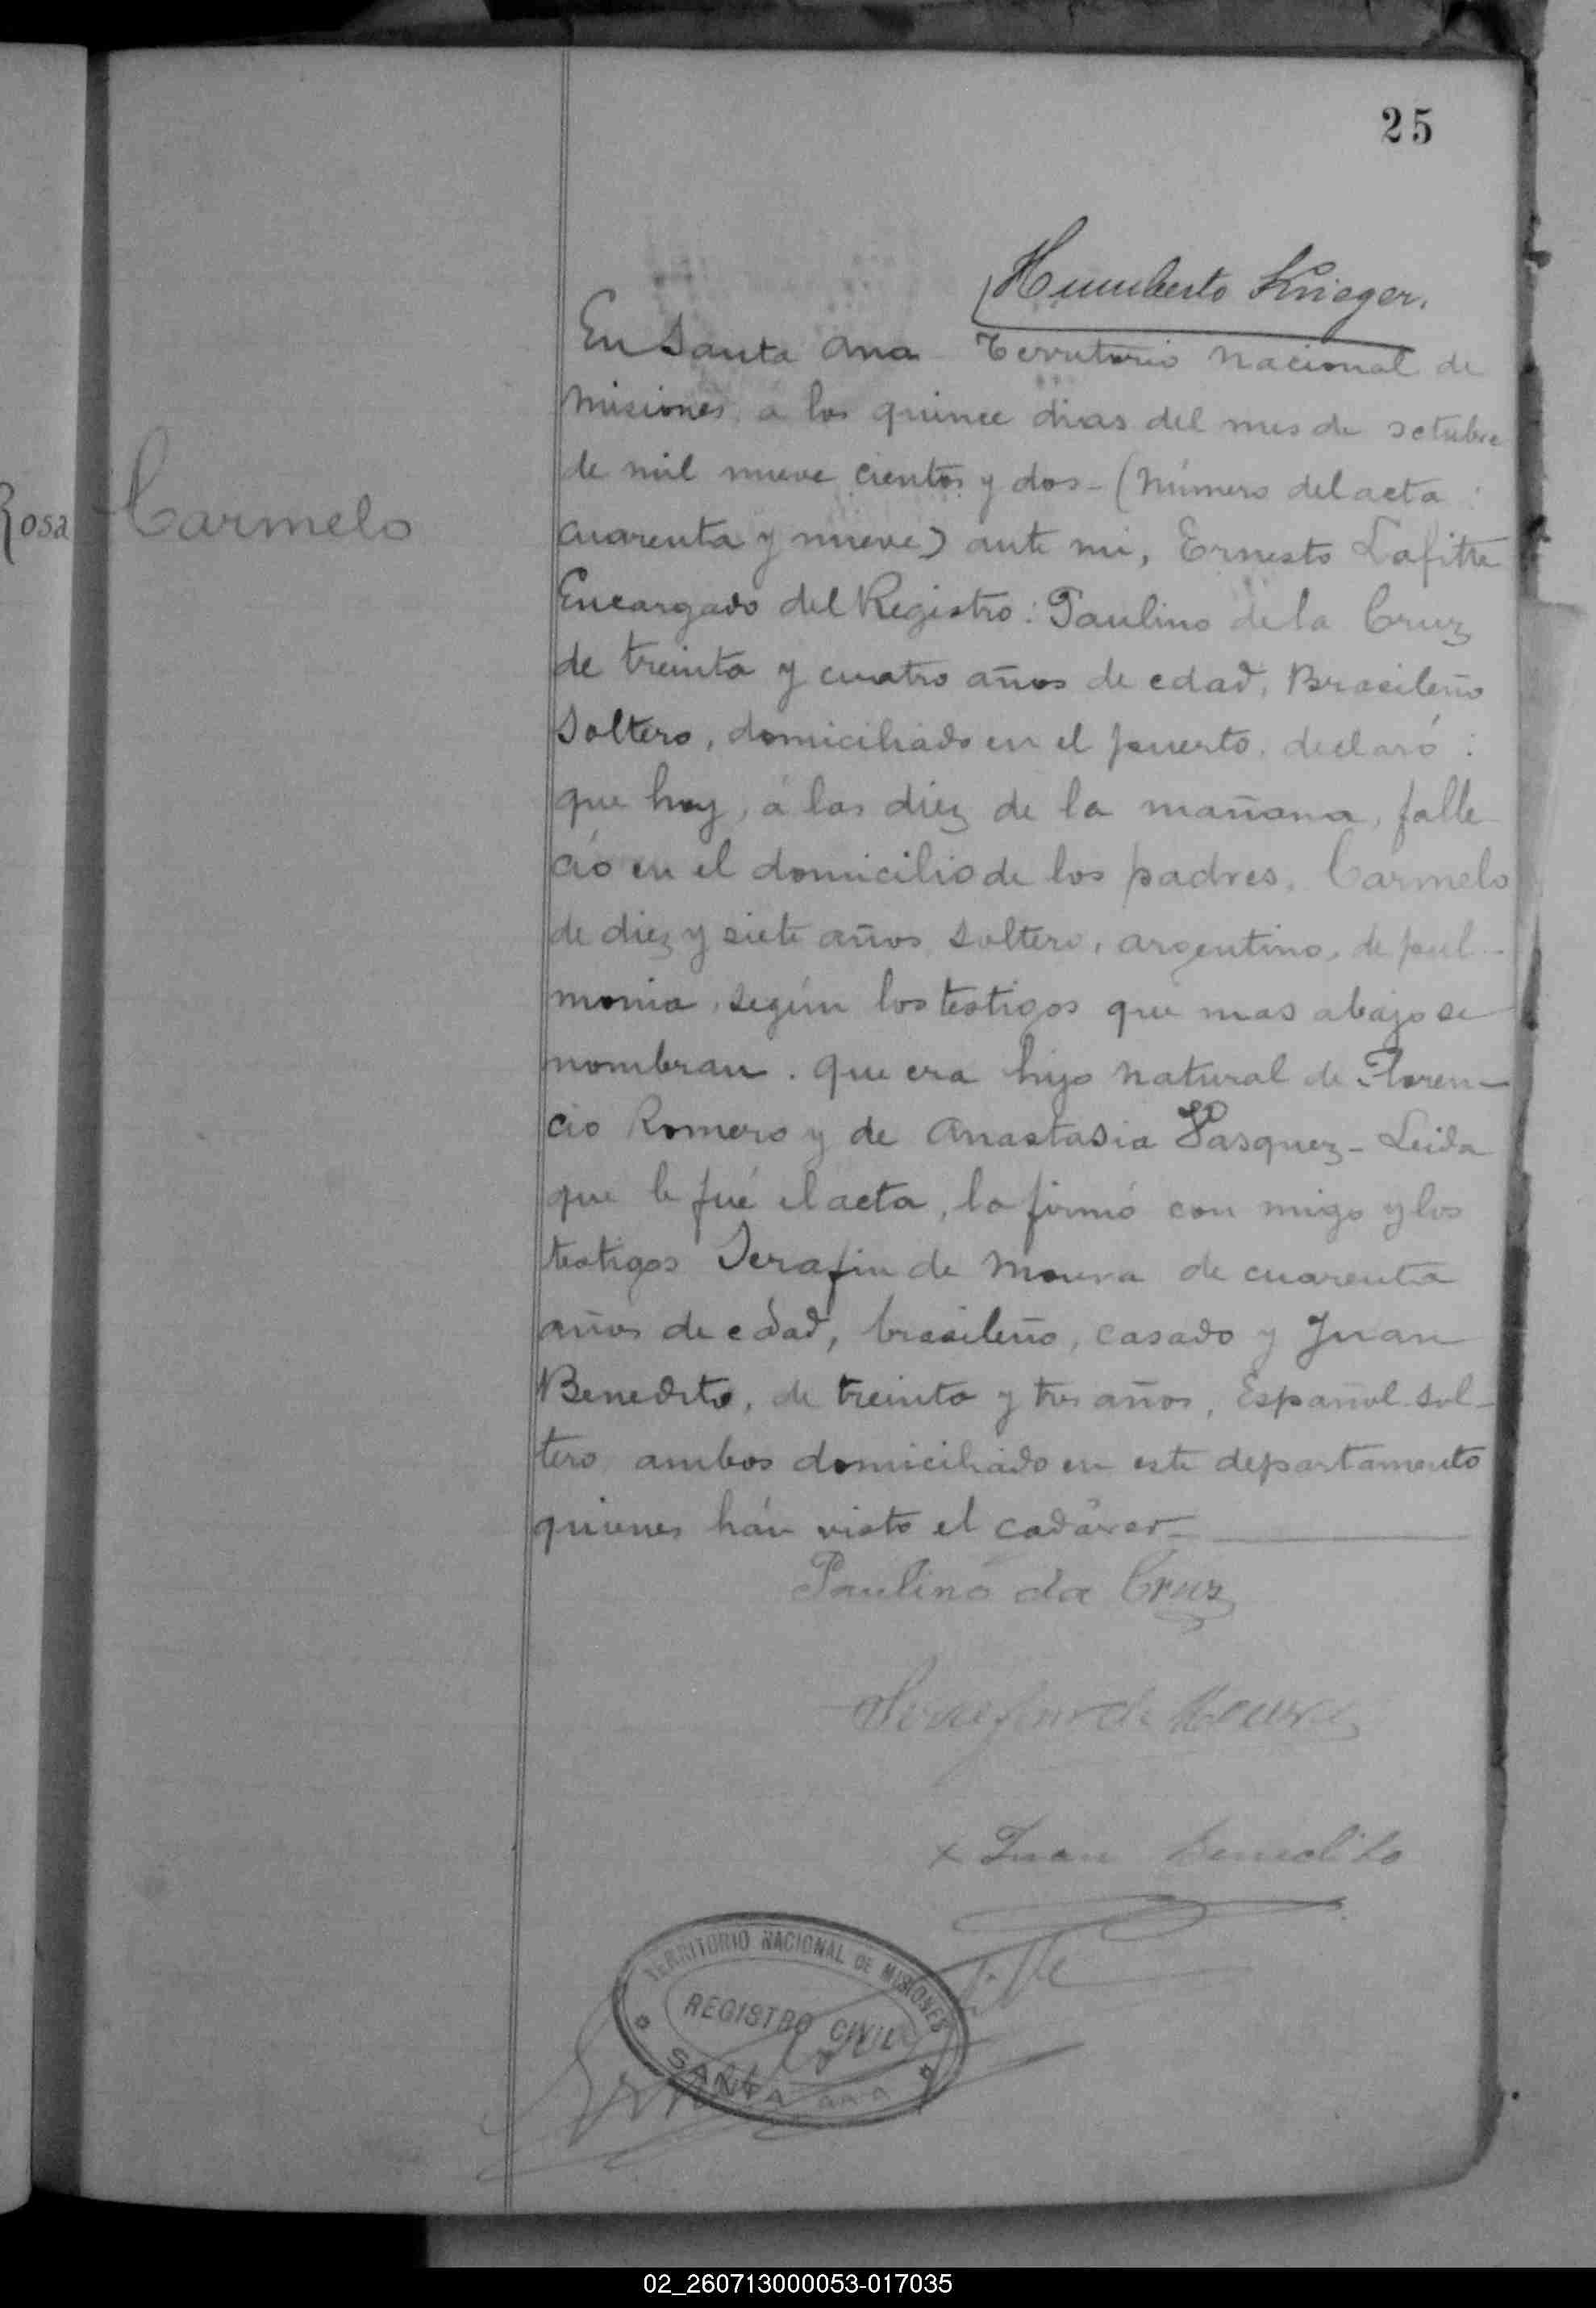 25
Humberto Krieger.
En Santa Ana Territorio Nacional de
Misiones, á los quince dias del mes de octubre
de mil nueve cientos y dos - (Número del acta :
Rosa
Carmelo
cuarenta y nueve) ante mi, Ernesto Lafitte
Encargado del Registro : Paulino de la Cruz
de treinta y cuatro años de edad, Brasileño
Soltero, domiciliado en el puerto, declaró :
que hoy, á las diez de la mañana, falle
ció en el domicilio de los padres, Carmelo
de diez y siete años, soltero, argentino, de pul-
monia, según los testigos que mas abajo se
nombran. Que era hijo natural de Floren-
cio Romero y de Anastasia Vasquez - Leida
que le fué el acta, la firmó con migo y los
testigos Serafin de Moura de cuarenta
años de edad, brasileño, casado y Juan
Benedito, de treinta y tres años, Español sol-
tero, ambos domiciliado en este departamento
quienes hán visto el cadáver -
Paulino da Cruz
Serafin de Moura
x Juan Benedito
TERRITORIO NACIONAL DE MISIONES
REGISTRO CIVIL
SANTA ANA
02_260713000053-017035